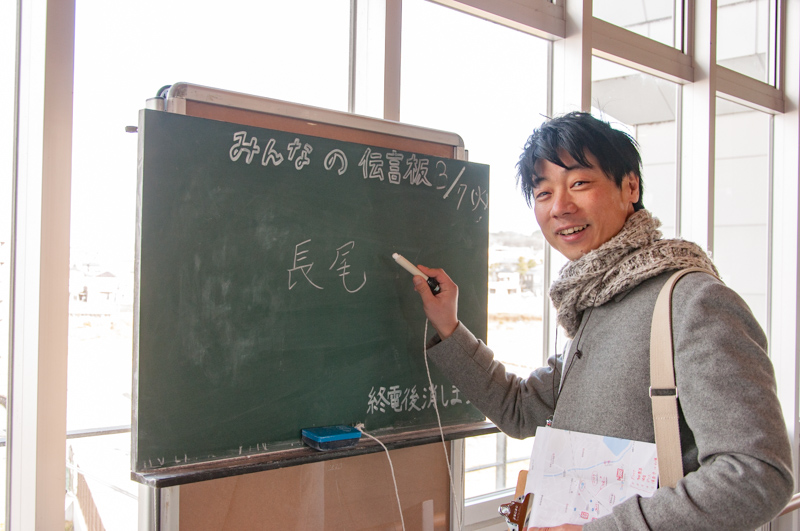 みんなの伝言板
3/7(火)
長尾
終電後消しま